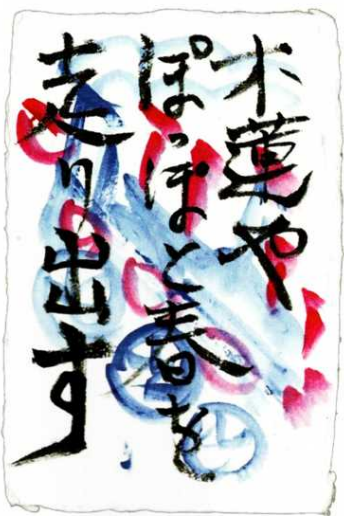 木蓮や
ぽっぽと春を
走り出す